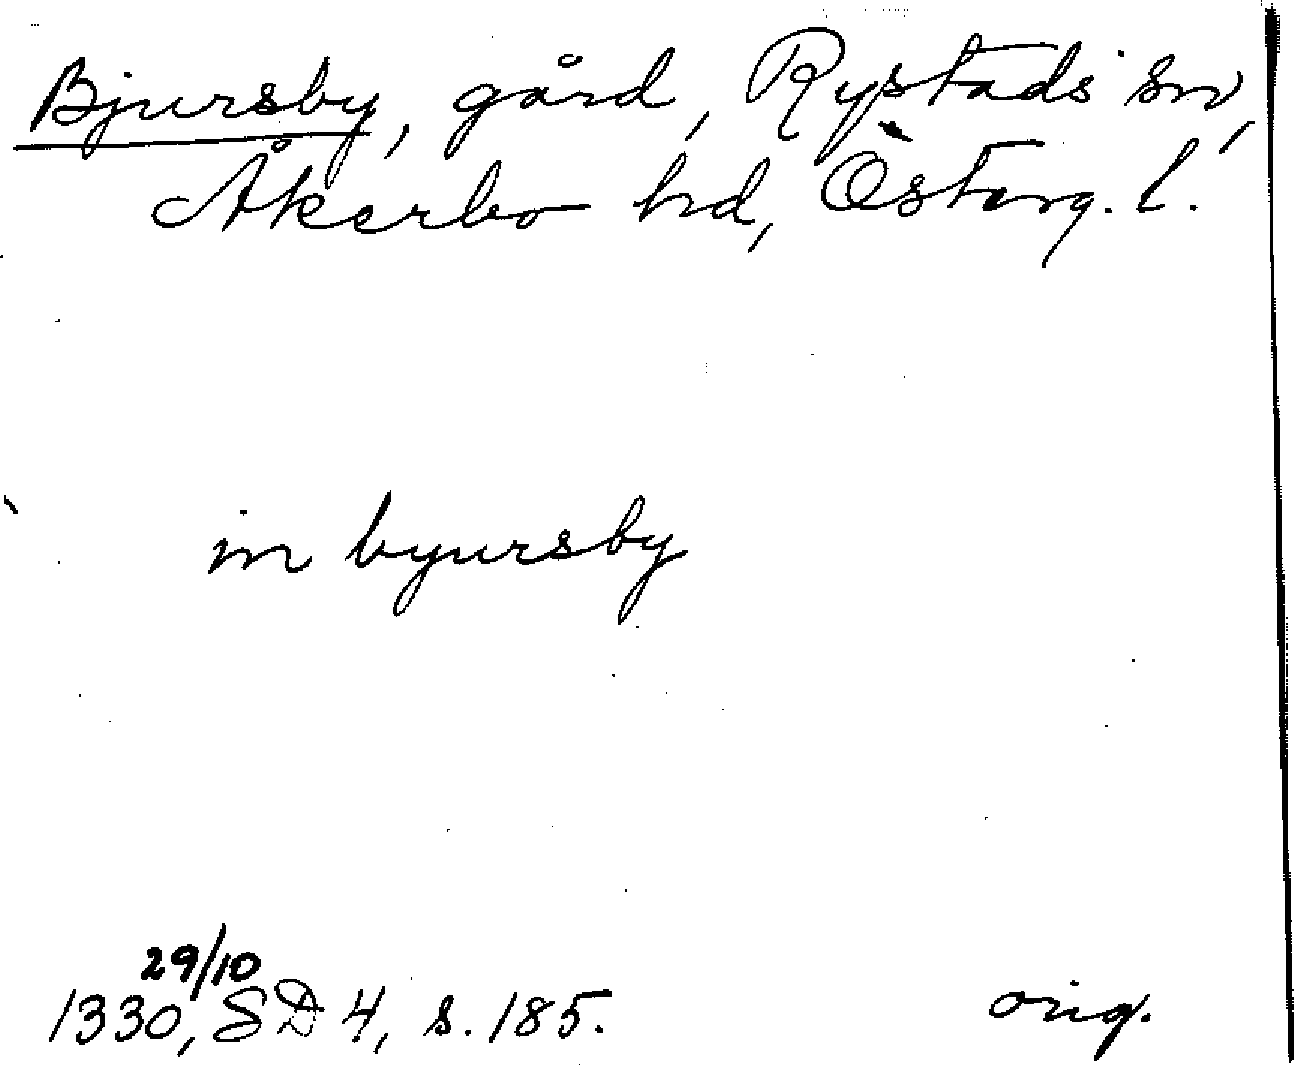 Bjursby, gård, Rystads sn,
Åkerbo hd, Österg. l.
in byursby
29/10
1330, SD 4, s. 185.
orig.